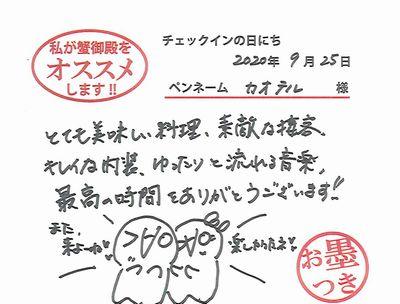 私が蟹御殿を
オススメ
します!!
チェックインの日にち
2020年 9月 25日
ペンネーム カオテル 様
とても美味しい料理、素敵な接客
キレイな内装、ゆったりと流れる音楽、
最高の時間をありがとうございます!!
また、
来よーね
楽しかったネ
お墨
つき